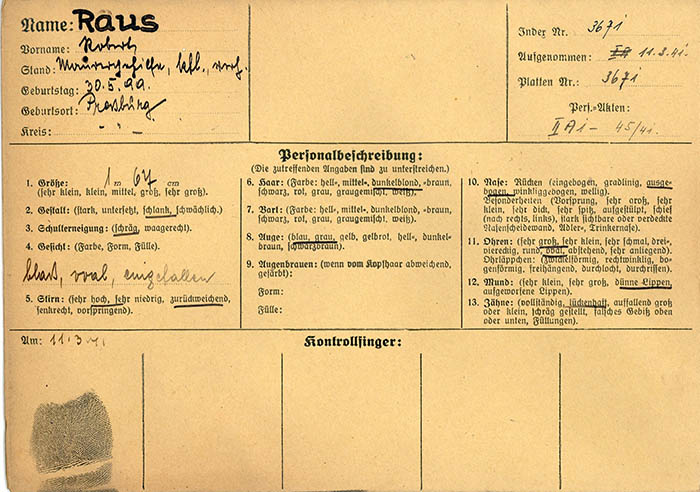 Name: Raus
Vorname: Robert
Stand: Maurergehilfe, kfl., verh.
Geburtstag: 30.5.99.
Geburtsort: Preßburg
Kreis: - " -
Index Nr. 3671
Aufgenommen: 11.3.41.
Platten Nr.: 3671
Pers.-Akten:
II A 1 - 45/41.
Personalbeschreibung:
(Die zutreffenden Angaben sind zu unterstreichen.)
1. Größe: 1 m 67 cm
(sehr klein, klein, mittel, groß, sehr groß).
2. Gestalt: (stark, untersetzt, schlank, schwächlich.)
3. Schulterneigung: (schräg, waagerecht).
4. Gesicht: (Farbe, Form, Fülle).
blaß, oval, eingefallen
5. Stirn: (sehr hoch, sehr niedrig, zurückweichend,
senkrecht, vorspringend).
6. Haar: (Farbe: hell-, mittel-, dunkelblond, -braun,
schwarz, rot, grau, graugemischt, weiß).
7. Bart: (Farbe: hell-, mittel-, dunkelblond, -braun,
schwarz, rot, grau, graugemischt, weiß).
8. Auge: (blau, grau, gelb, gelbrot, hell-, dunkel-
braun, schwarzbraun).
9. Augenbrauen: (wenn vom Kopfhaar abweichend,
gefärbt):
Form:
Fülle:
10. Nase: Rücken (eingebogen, gradlinig, ausge-
bogen, winkliggebogen, wellig).
Besonderheiten (Vorsprung, sehr groß, sehr
klein, sehr dick, sehr spitz, aufgestülpt, schief
(nach rechts, links), stark sichtbare oder verdeckte
Nasenscheidewand, Adler-, Trinkernase).
11. Ohren: (sehr groß, sehr klein, sehr schmal, drei-
viereckig, rund, oval, abstehend, sehr anliegend).
Ohrläppchen: (zwickelförmig, rechtwinklig, bo-
genförmig, freihängend, durchlocht, durchrissen).
12. Mund: (sehr klein, sehr groß, dünne Lippen,
aufgeworfene Lippen).
13. Zähne: (vollständig, lückenhaft, auffallend groß
oder klein, schräg gestellt, falsches Gebiß oben
oder unten, Füllungen).
Am: 11.3.41
Kontrollfinger: